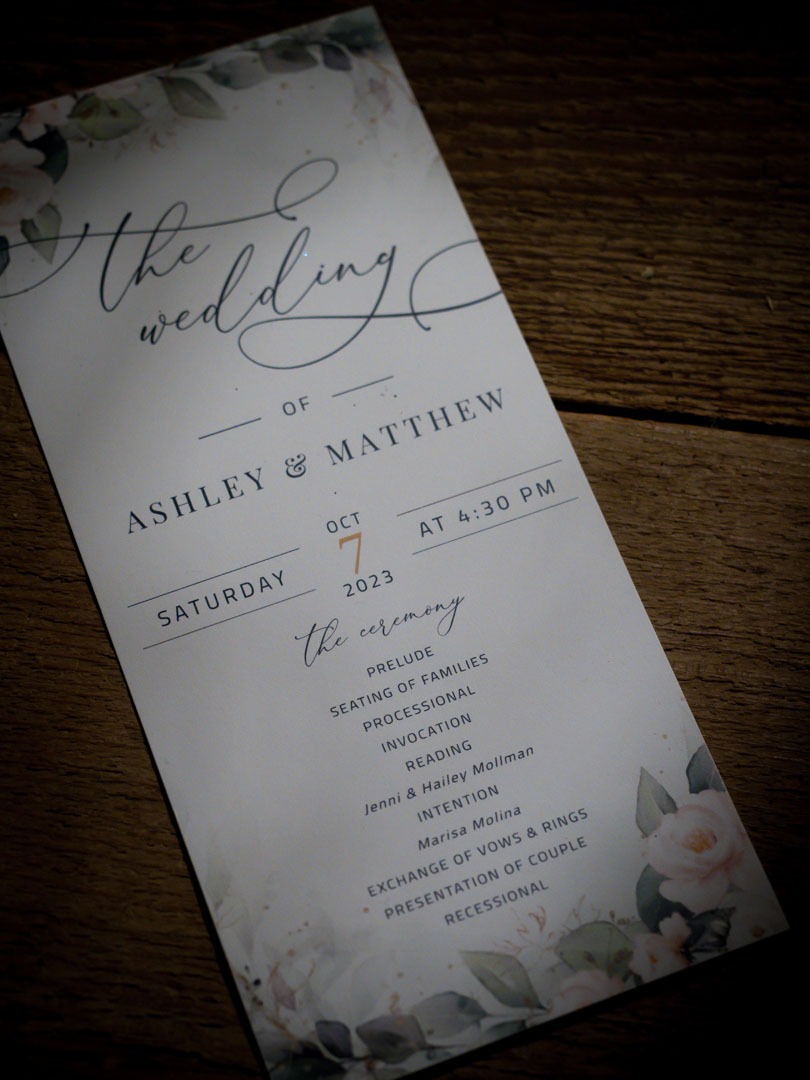 the
wedding
OF
ASHLEY & MATTHEW
SATURDAY
OCT
7
2023
AT 4:30 PM
the ceremony
PRELUDE
SEATING OF FAMILIES
PROCESSIONAL
INVOCATION
READING
Jenni & Hailey Mollman
INTENTION
Marisa Molina
EXCHANGE OF VOWS & RINGS
PRESENTATION OF COUPLE
RECESSIONAL